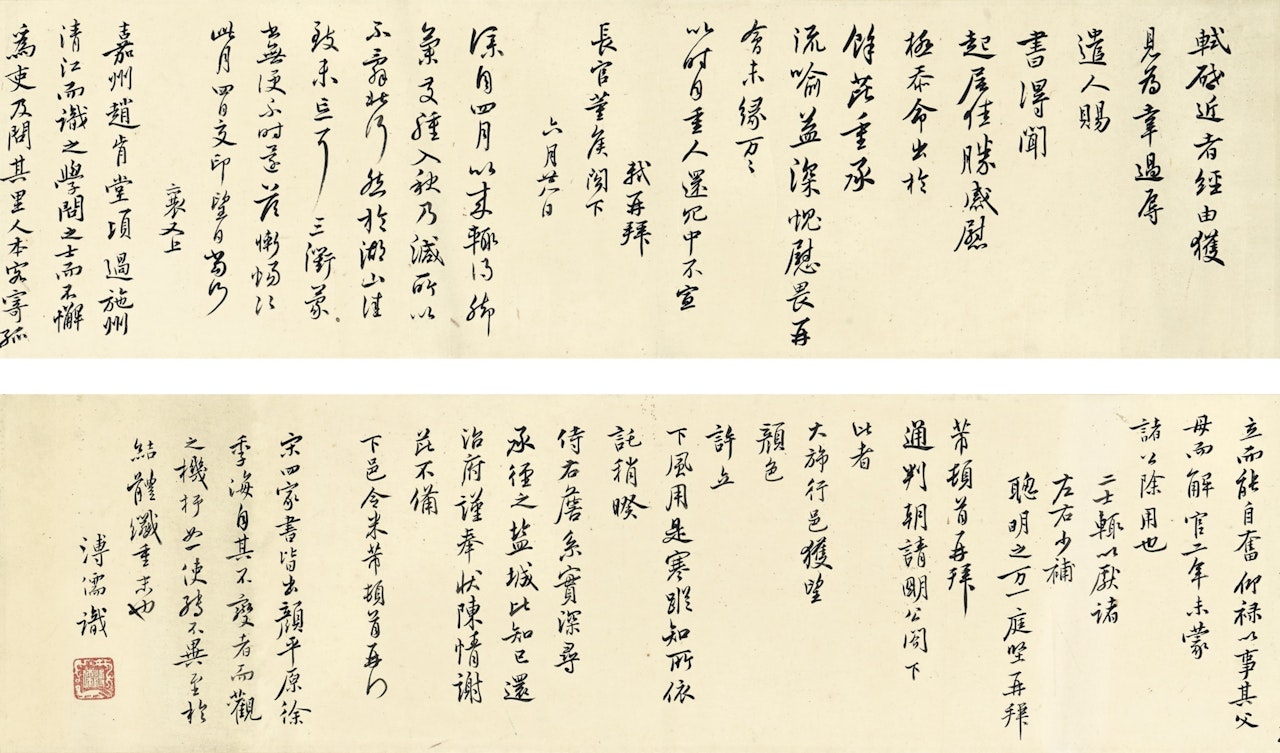 軾啓近者經由獲
見為幸過辱
遣人賜
書得聞
起居佳勝感慰
極忝命出於
餘茈重承
流喻益深愧慰畏再
會未緣万々
以时自重人還冗中不宣
軾再拜
長官董侯閣下
六月廿八日
僕自四月以來輒得脚
氣發腫入秋乃減所以
不辭北行然於湖山佳
致未忘耳三衢蒙
書無便不时還答慚惕々
此月四日交印望日當行
襄又上
嘉州趙肯堂頃過施州
清江而識之學問之士而不懈
為吏及問其里人本客寄孤
立而能自奮仰禄以事其父
母而解官二年未蒙
諸公除用也
二士輒以厭諸
左右少補
聰明之万一庭堅再拜
芾頓首再拜
通判朝請明公閣下
比者
大旆行邑獲望
顏色
許立
下風用是寒蹤知所依
託稍暌
侍右詹系實深尋
承徑之鹽城比知已還
治府謹奉狀陳情謝
茈不備
下邑令米芾頓首再行
宋四家書皆出顏平原徐
季海自其不變者而觀
之機抒如一使轉不異至於
結體纖重末也
溥儒識